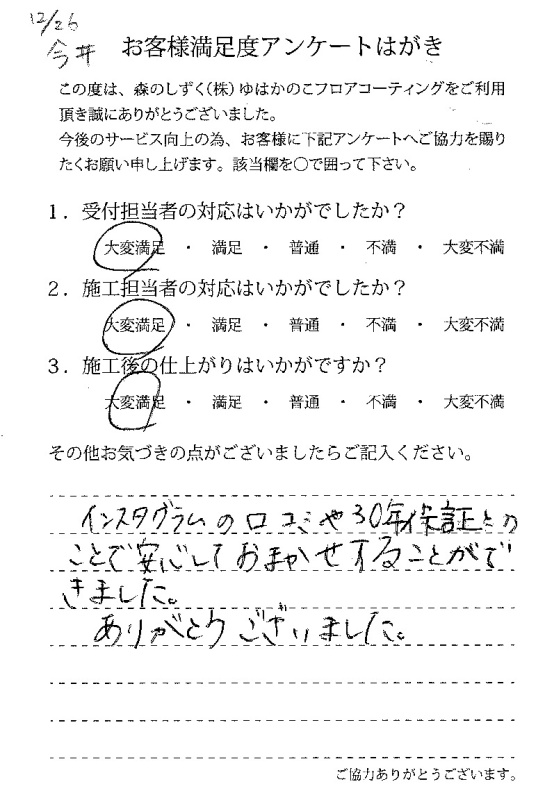 12/26
今井
お客様満足度アンケートはがき
この度は、森のしずく(株)ゆはかのこフロアコーティングをご利用
頂き誠にありがとうございました。
今後のサービス向上の為、お客様に下記アンケートへご協力を賜り
たくお願い申し上げます。該当欄を○で囲って下さい。
1. 受付担当者の対応はいかがでしたか？
大変満足 ・ 満足 ・ 普通 ・ 不満 ・ 大変不満
2. 施工担当者の対応はいかがでしたか？
大変満足 ・ 満足 ・ 普通 ・ 不満 ・ 大変不満
3. 施工後の仕上がりはいかがですか？
大変満足 ・ 満足 ・ 普通 ・ 不満 ・ 大変不満
その他お気づきの点がございましたらご記入ください。
インスタグラムの口コミや30年保証との
ことで安心しておまかせすることがで
きました。
ありがとうございました。
ご協力ありがとうございます。